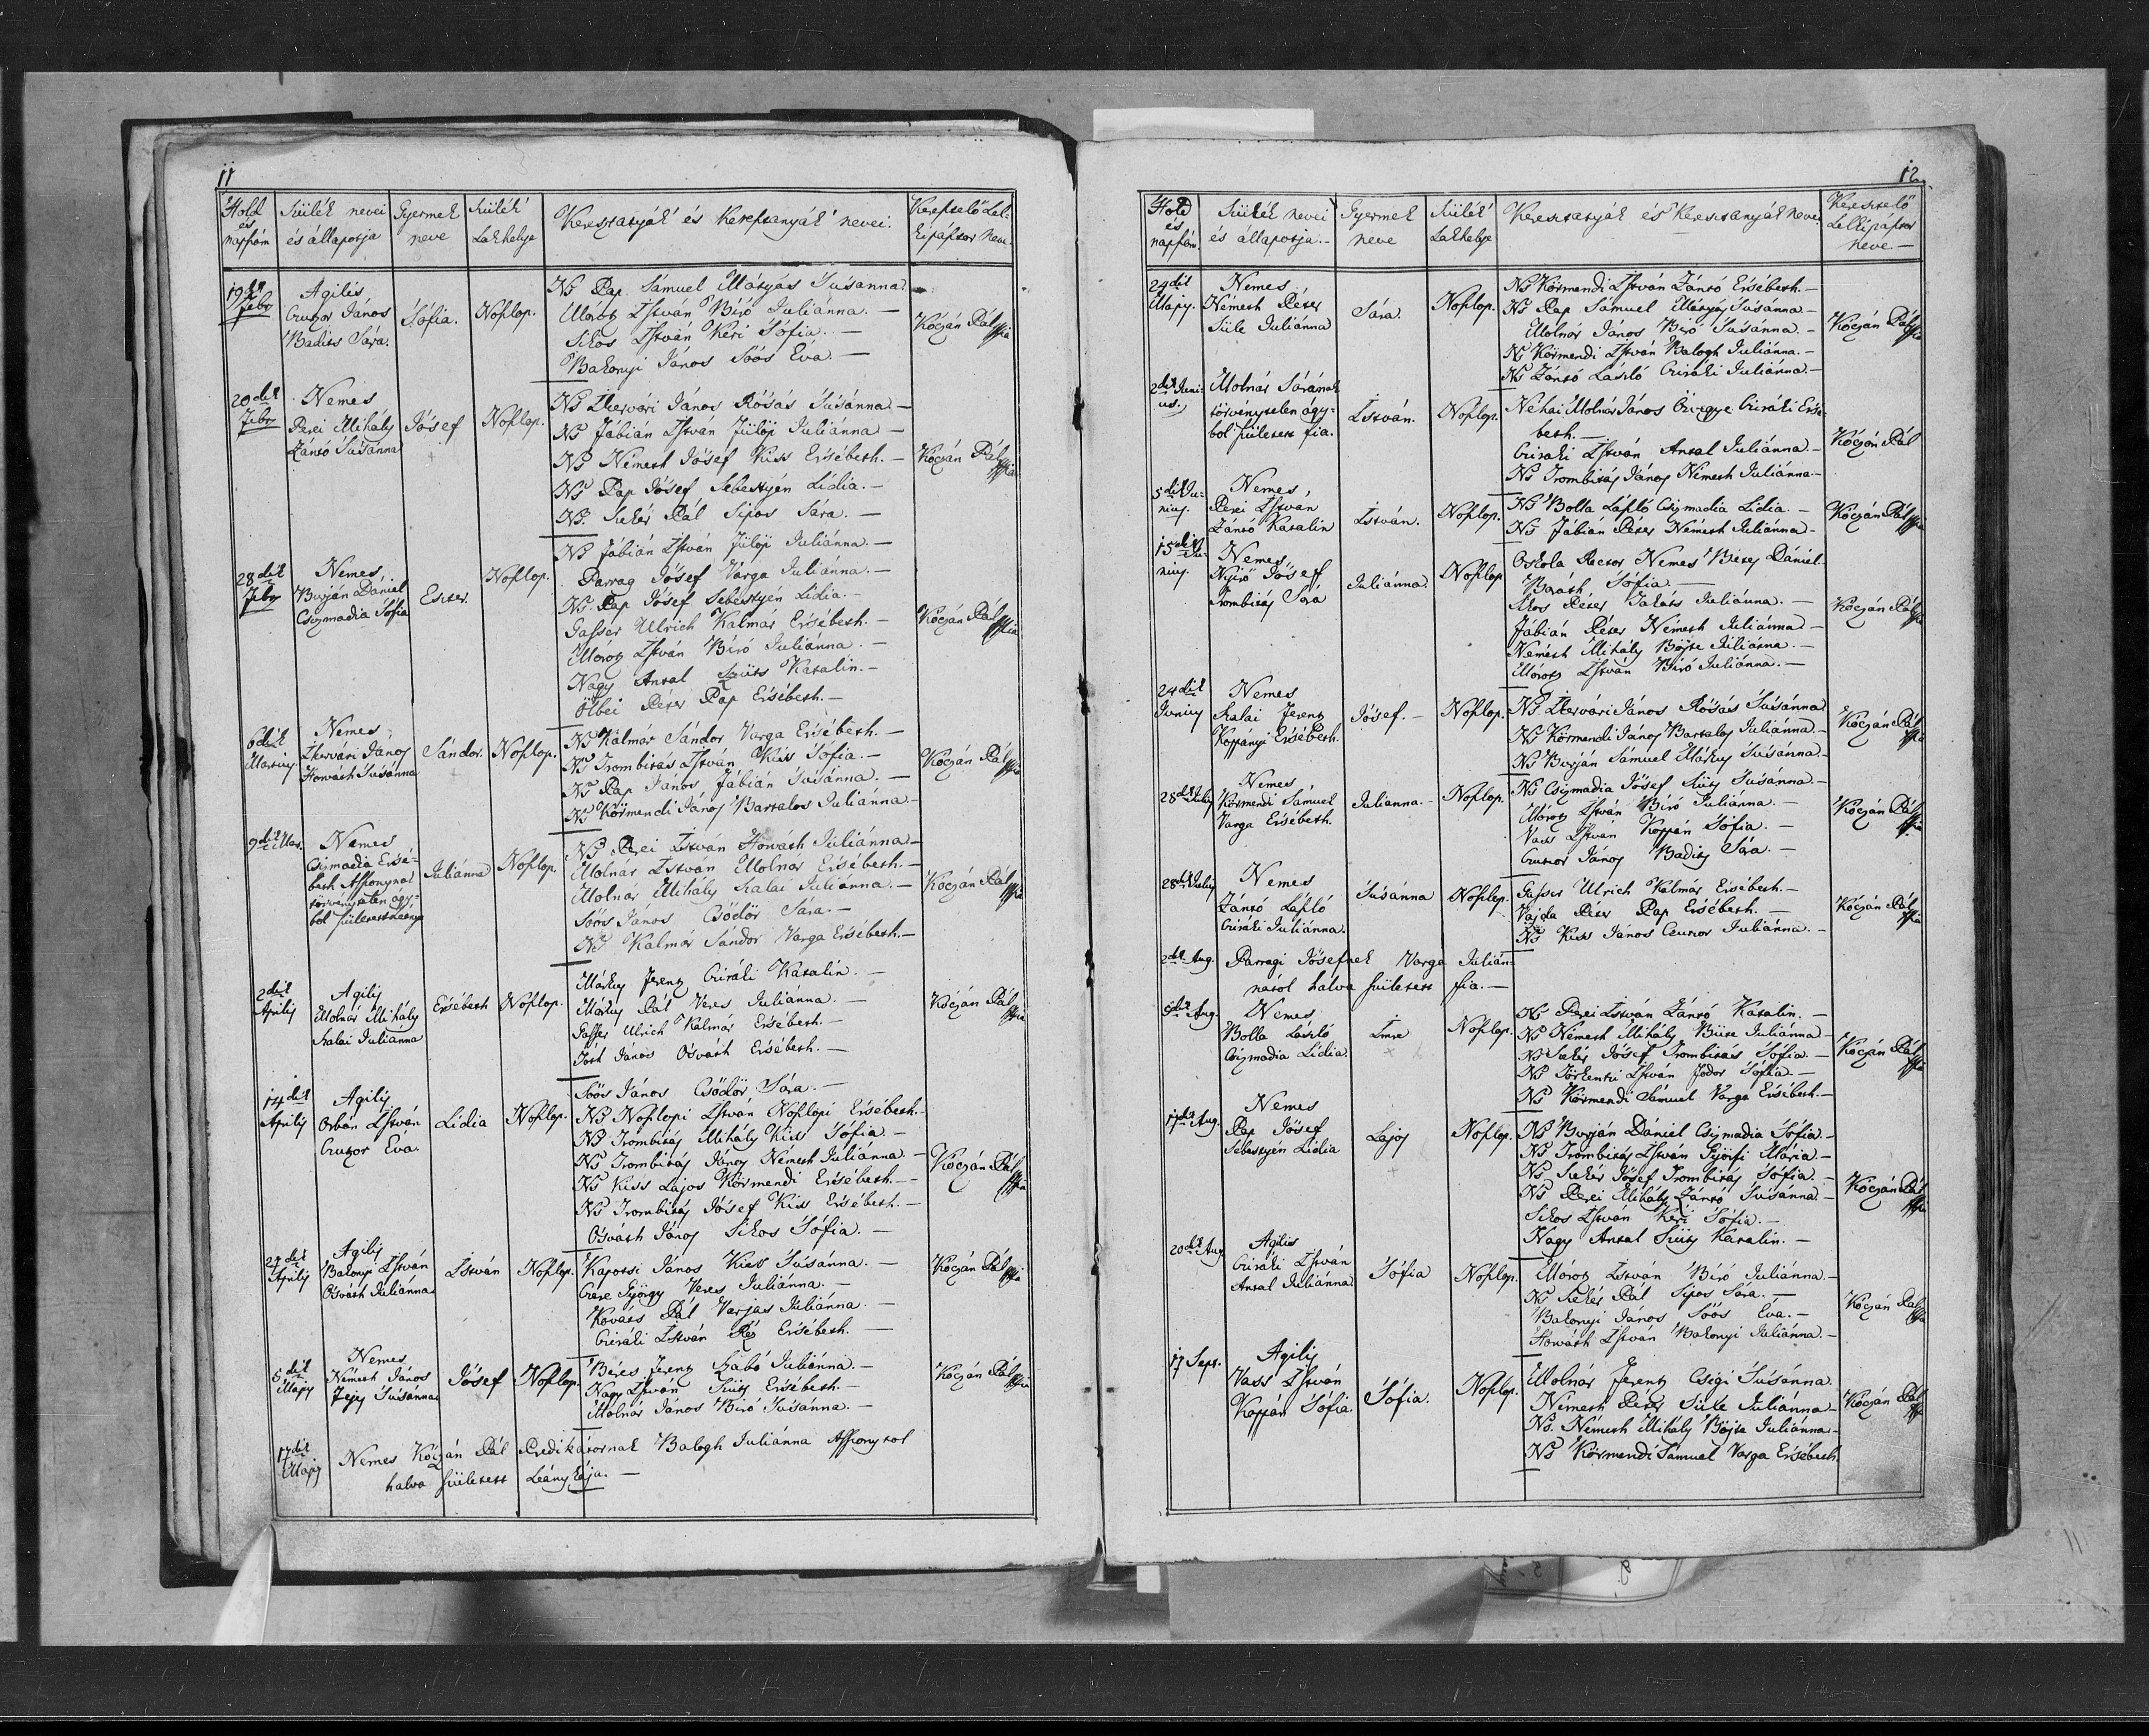 11
Hold és napszám
Szülék nevei és állapotja
Gyermek neve
Szülék' Lakhelye
Keresztatyák' és Keresztanyák' nevei.
Keresztelő Lelkipásztor neve.
19dik Febr
Agilis
Czuczor János
Badits Sára.
Sófia.
Noszlop.
Ns Pap Sámuel Mátyás Susánna.
Mórotz István Bíró Juliánna. —
Sikos István Kéri Sófia. —
Bakonyi János Soós Éva. —
Kóczán Pál
20dik Febr
Nemes
Perei Mihály
Zántó Susánna
Jósef
Noszlop.
Ns Ihervári János Rósás Susánna. —
Ns Fábián István Fülöp Juliánna —
Ns Németh Jósef Kiss Ersébeth. —
Ns Pap Jósef Sebestyén Lidia. —
Ns. Szekér Pál Sipos Sára. —
Kóczán Pál
28dik Febr
Nemes
Burján Dániel
Csizmadia Sófia
Eszter.
Noszlop.
Ns Fábián István Fülöp Juliánna. —
Parrag Jósef Varga Juliánna. —
Ns. Pap Jósef Sebestyen Lidia. —
Gasser Ulrich Kalmár Ersébeth. —
Mórotz István Bíró Juliánna. —
Nagy Antal Szüts Katalin. —
Ölbei Péter Pap Ersébeth. —
Kóczán Pál
6dik Martius
Nemes
Ihervári János
Horváth Susánna
Sándor.
Noszlop.
Ns Kalmár Sándor Varga Ersébeth. —
Ns Trombitás István Kiss Sofia. —
Ns Pap János Fábián Susánna. —
Ns Körmendi János Bartalos Juliánna —
Kóczán Pál
9dik Mar.
Nemes
Csizmadia Ersé-
beth Asszonynak
törvénytelen ágy-
ból született Leánya
Juliánna
Noszlop.
Ns Perei István Howáth Juliánna —
Molnár István Molnár Ersébeth. —
Molnár Mihály Kalai Juliánna. —
Soós János Csödör Sára. —
Ns Kalmár Sándor Varga Ersébeth. —
Kóczán Pál
2dik Aprilis
Agilis
Molnár Mihály
Kalai Juliánna
Ersébeth
Noszlop.
Márkus Ferentz Csiráki Katalin. —
Márkus Pál Veres Juliánna. —
Gasser Ulrich Kalmár Ersébeth. —
Tóth János Osváth Ersébeth. —
Kóczán Pál
14dik Aprilis
Agilis
Orbán István
Czuczor Eva.
Lidia
Noszlop.
Soós János Csödör Sára. —
Ns Noszlopi István Noszlopi Ersébeth. —
Ns Trombitás Mihály Kiss Sófia. —
Ns Trombitás János Németh Juliánna. —
Ns Kiss Lajos Körmendi Ersébeth. —
Ns Trombitás Jósef Kiss Ersébeth. —
Osváth János Sikos Sófia. —
Kóczán Pál
27dik Aprilis
Agilis
Bakonyi István
Osváth Juliánna
István
Noszlop.
Kapotsi János Kiss Susánna. —
Cseze György Veres Juliánna. —
Kováts Pál Varjas Juliánna. —
Csiráki István Rés Ersébeth. —
Kóczán Pál
5dik Majus
Nemes
Németh János
Fejes Susánna
Jósef
Noszlop.
Béres Ferentz Szabó Juliánna. —
Nagy István Szüts Ersébeth. —
Molnár János Biró Susánna. —
Kóczán Pál
17dik Majus
Nemes Kóczán Pál Predikátornak Balogh Juliánna Asszonytol
halva született Leánykája. —
12.
Hold és napszám.
Szülék nevei és állapotja. —
Gyermek neve
Szülék' Lakhelye
Keresztatyák és Keresztanyák nevei
Keresztelő Lelkipásztor neve. —
24dik Majus.
Nemes
Németh Péter
Süle Juliánna
Sára.
Noszlop.
Ns Körmendi István Zántó Ersébeth. —
Ns Pap Sámuel Mátyás Susánna. —
Molnár János Biró Susánna. —
Ns Körmendi István Balogh Juliánna. —
Ns Zántó László Csiráki Juliánna. —
Kóczán Pál
2dik Juni-
us.
Molnár Sárának
törvénytelen ágy-
ból született fia.
István.
Noszlop.
Néhai Molnár János Özvegye Csiráki Ersé-
beth. —
Csiráki István Antal Juliánna. —
Ns Trombitás János Németh Juliánna. —
Kóczán Pál
5dik Ju-
nius.
Nemes
Perei István
Zántó Katalin
István.
Noszlop.
Ns Bolla László Csizmadia Lidia. —
Ns Fábián Péter Németh Juliánna —
Kóczán Pál
15dik Ju-
nius.
Nemes
Nyirő Jósef
Trombitás Sára
Juliánna.
Noszlop
Oskola Rector Nemes Bitey Dániel
Baráth Sófia. —
Sikos Péter Takáts Juliánna. —
Fábián Péter Németh Juliánna. —
Németh Mihály Böjte Juliánna. —
Mórotz István Biró Juliánna. —
Kóczán Pál
24dik
Junius
Nemes
Kalai Ferentz
Koppányi Ersébeth.
Jósef. —
Noszlop.
Ns Ihervári János Rósás Susánna
Ns Körmendi János Bartalos Juliánna. —
Ns Burján Sámuel Márkus Susánna. —
Kóczán Pál
28dik Julij
Nemes
Körmendi Sámuel
Varga Ersébeth.
Julianna. —
Noszlop.
Ns Csizmadia Jósef Szüts Susánna. —
Mórotz István Biró Juliánna. —
Vass István Koppán Sófia. —
Czuczor János Badits Sára. —
Kóczán Pál
28dik Julij
Nemes
Zántó László
Csiráki Juliánna.
Susánna
Noszlop.
Gasser Ulrich Kalmár Ersébeth. —
Vajda Péter Pap Ersébeth. —
Ns Kiss János Czuczor Juliánna. —
Kóczán Pál
2dik Aug.
Parragi Jósefnek Varga Julián-
nátol halva született fia. —
6dik Aug.
Nemes
Bolla László
Csizmadia Lidia.
Imre
Noszlop.
Ns Perei István Zántó Katalin. —
Ns Németh Mihály Böite Juliánna —
Ns Szekér Jósef Trombitás Sófia. —
Ns Törkentzi István Fodor Sófia. —
Ns Körmendi Sámuel Varga Ersébeth. —
Kóczán Pál
17dik Aug.
Nemes
Pap Jósef
Sebestyén Lidia
Lajos
Noszlop.
Ns Burján Dániel Csizmadia Sófia. —
Ns Trombitás István Györfi Mária. —
Ns Szekér Jósef Trombitás Sófia. —
Ns Perei Mihály Zántó Susánna. —
Sikos István Kéri Sófia. —
Nagy Antal Szüts Katalin. —
Kóczán Pál
20dik Aug
Agilis
Csiráki István
Antal Juliánna
Sófia
Noszlop.
Mórotz István Bíró Juliánna. —
Ns Szekér Pál Sipos Sára. —
Bakonyi János Soós Éva. —
Howáth István Bakonyi Juliánna. —
Kóczán Pál
17 Sept.
Agilis
Vass István
Koppán Sófia.
Sófia.
Noszlop.
Molnár Ferentz Csigi Susánna.
Németh Péter Süle Juliánna —
Ns. Németh Mihály Böjte Juliánna. —
Ns Körmendi Sámuel Varga Ersébeth
Kóczán Pál